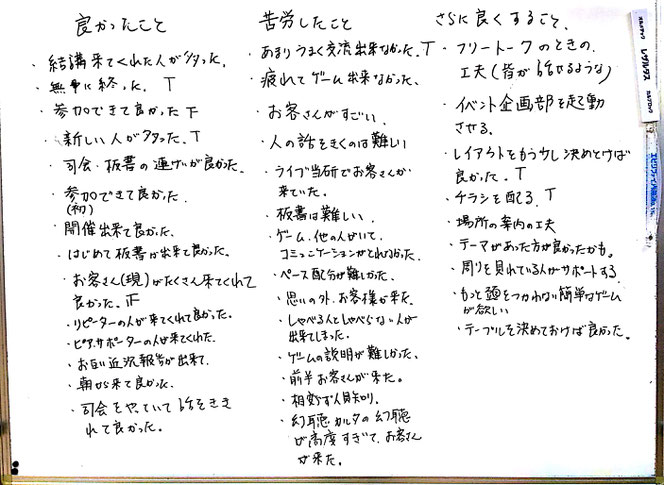 良かったこと
・結講来てくれた人が多かった。
・無事に終った。T
・参加できて良かった 下
・新しい人が多かった。T
・司会・板書の運びが良かった。
・参加できて良かった。
(初)
・開催出来て良かった。
・はじめて板書が出来て良かった。
・お客さん(現)がたくさん来てくれて
良かった。正
・リピーターの人が来てくれて良かった。
・ピアサポーターの人が来てくれた。
・お互い近況報告が出来て.
・朝から来て良かった。
・司会をやっていて話をきき
れて良かった。
苦労したこと
・あまりうまく交流出来なかった。T
・疲れてゲーム出来なかった。
・お客さんがすごい。
・人の話をきくのは難しい
・ライブ当研でお客さんが
来ていた。
・板書は難しい。
・ゲーム、他の人がいて、
コミュニケーションがとれなかった。
・ペース配分が難しかった。
・思いの外、お客様が来た。
・しゃべる人としゃべらない人が
出来てしまった。
・ゲームの説明が難しかった、
・前半お客さんが来た。
・相変らず人見知り。
・幻聴カルタの幻聴
が高度すぎて、お客さん
が来た。
さらに良くすること、
・フリートークのときの、
工夫(皆が話せるような)
・イベント企画部を起動
させる。
・レイアウトをもう少し決めとけば
良かった。T
・チラシを配る、T
・場所の案内の工夫
・テーマがあった方が良かったかも。
・周りを見れている人がサポートする
・もっと頭をつかわない簡単なゲーム
が欲しい
・テーブルを決めておけば良かった。